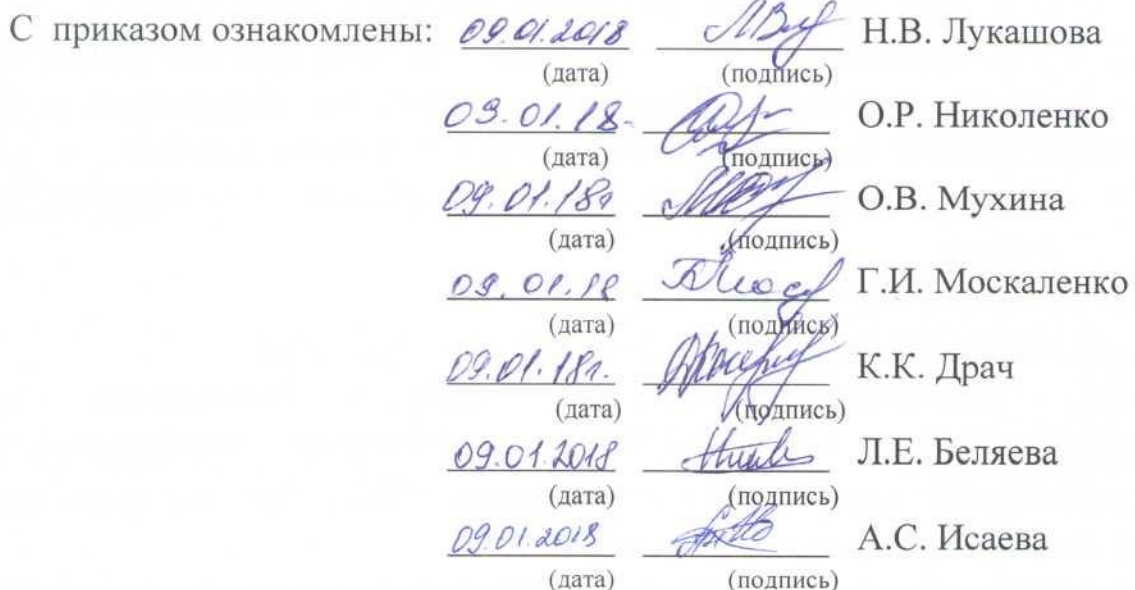 С приказом ознакомлены: 09.01.2018 Н.В. Лукашова
(дата) (подпись)
09.01.18. О.Р. Николенко
(дата) (подпись)
09.01.18г О.В. Мухина
(дата) (подпись)
09.01.18 Г.И. Москаленко
(дата) (подпись)
09.01.18г. К.К. Драч
(дата) (подпись)
09.01.2018 Л.Е. Беляева
(дата) (подпись)
09.01.2018 А.С. Исаева
(дата) (подпись)